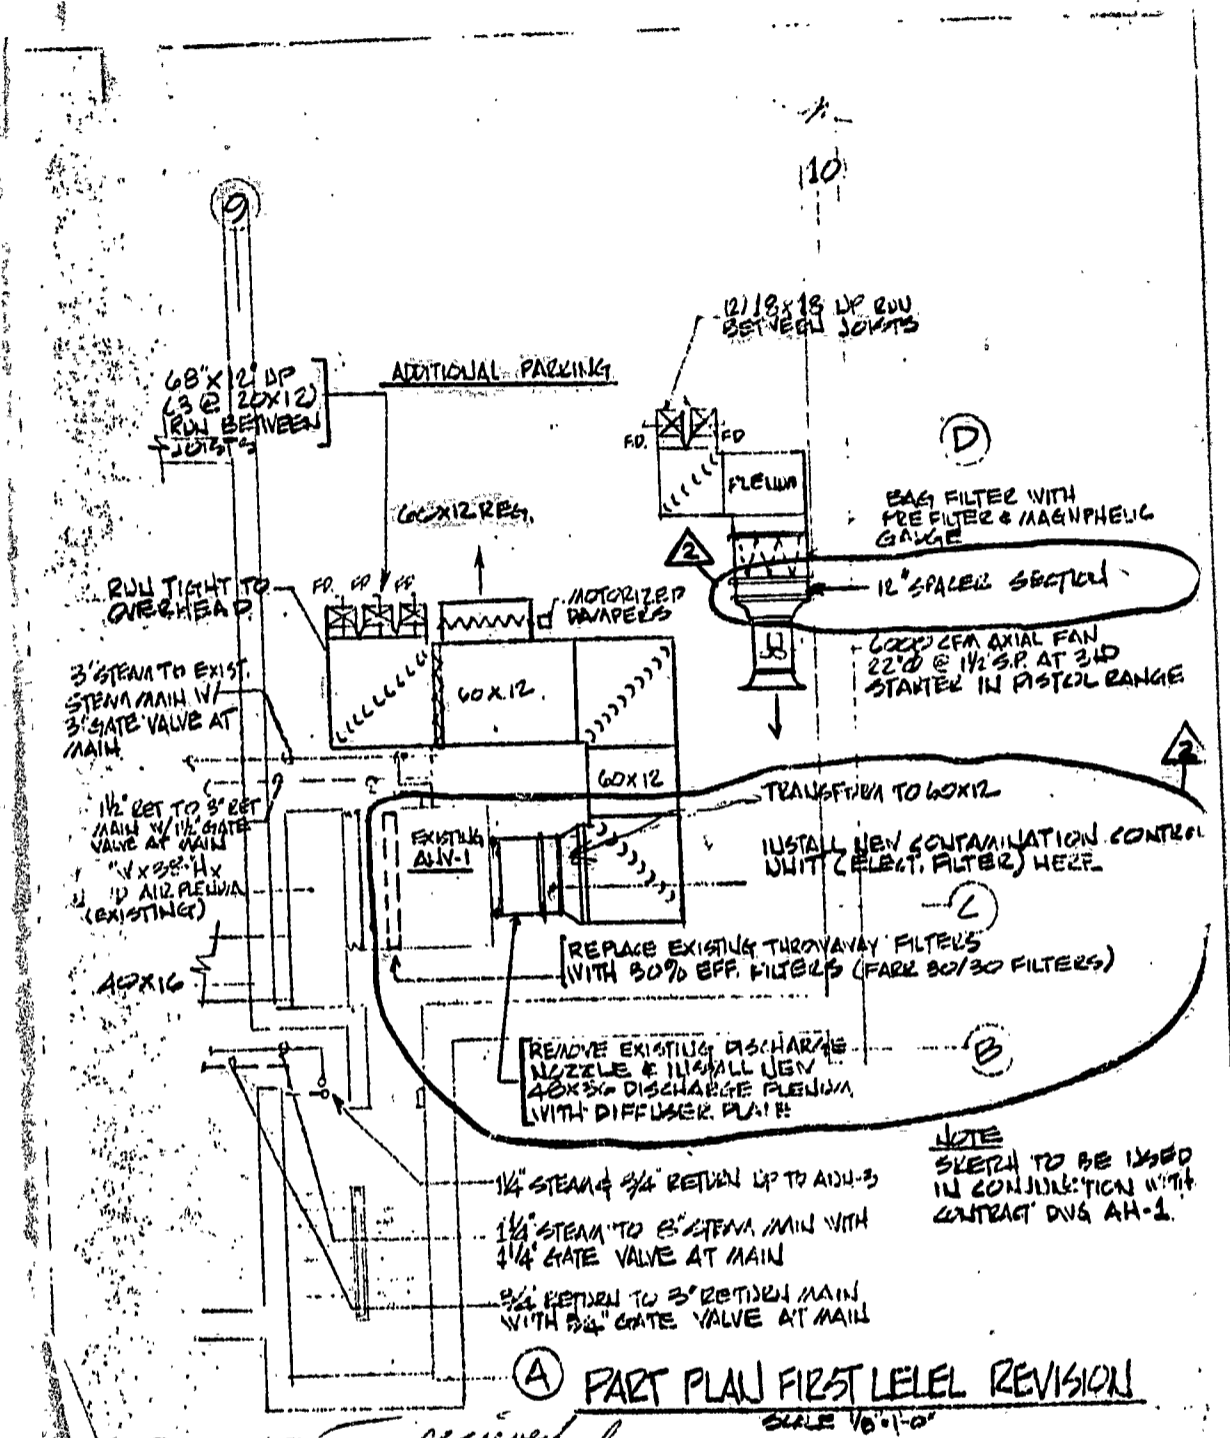 9
10
(2) 18x18 UP RUN
BETWEEN JOISTS
68"x12" UP
(3 @ 20x12)
RUN BETWEEN
JOISTS
ADDITIONAL PARKING
F.D.
FD
PLENUM
D
BAG FILTER WITH
PRE FILTER & MAGNPHELIC
GAUGE
2
12" SPACER SECTION
6000 CFM AXIAL FAN
22"Ø @ 1½" S.P. AT 3HD
STARTER IN PISTOL RANGE
REG.
RUN TIGHT TO
OVERHEAD
FD. FD FF
MOTORIZED
DAMPERS
60x12.
3" STEAM TO EXIST.
STEAM MAIN W/
3" GATE VALVE AT
MAIN
60x12
2
TRANSFORM TO 60x12
1½" RET TO 3" RET
MAIN W/ 1½" GATE
VALVE AT MAIN
AIR PLENUM
(EXISTING)
EXISTING
AHV-1
INSTALL NEW CONTAMINATION CONTROL
UNIT (ELECT. FILTER) HERE
C
REPLACE EXISTING THROWAWAY FILTERS
WITH 30% EFF. FILTERS (FARR 30/30 FILTERS)
40x16
REMOVE EXISTING DISCHARGE
NOZZLE & INSTALL NEW
48x36 DISCHARGE PLENUM
WITH DIFFUSER PLATE
B
NOTE
SKETCH TO BE USED
IN CONJUNCTION WITH
CONTRACT DWG AH-1.
1¼" STEAM & 3/4" RETURN UP TO
1¼" STEAM TO 8" STEAM MIN WITH
1¼" GATE VALVE AT MAIN
3/4" RETURN TO 3" RETURN MAIN
WITH 3/4" GATE VALVE AT MAIN
A
PART PLAN FIRST LELEL REVISION
SCALE 1/8"=1'-0"